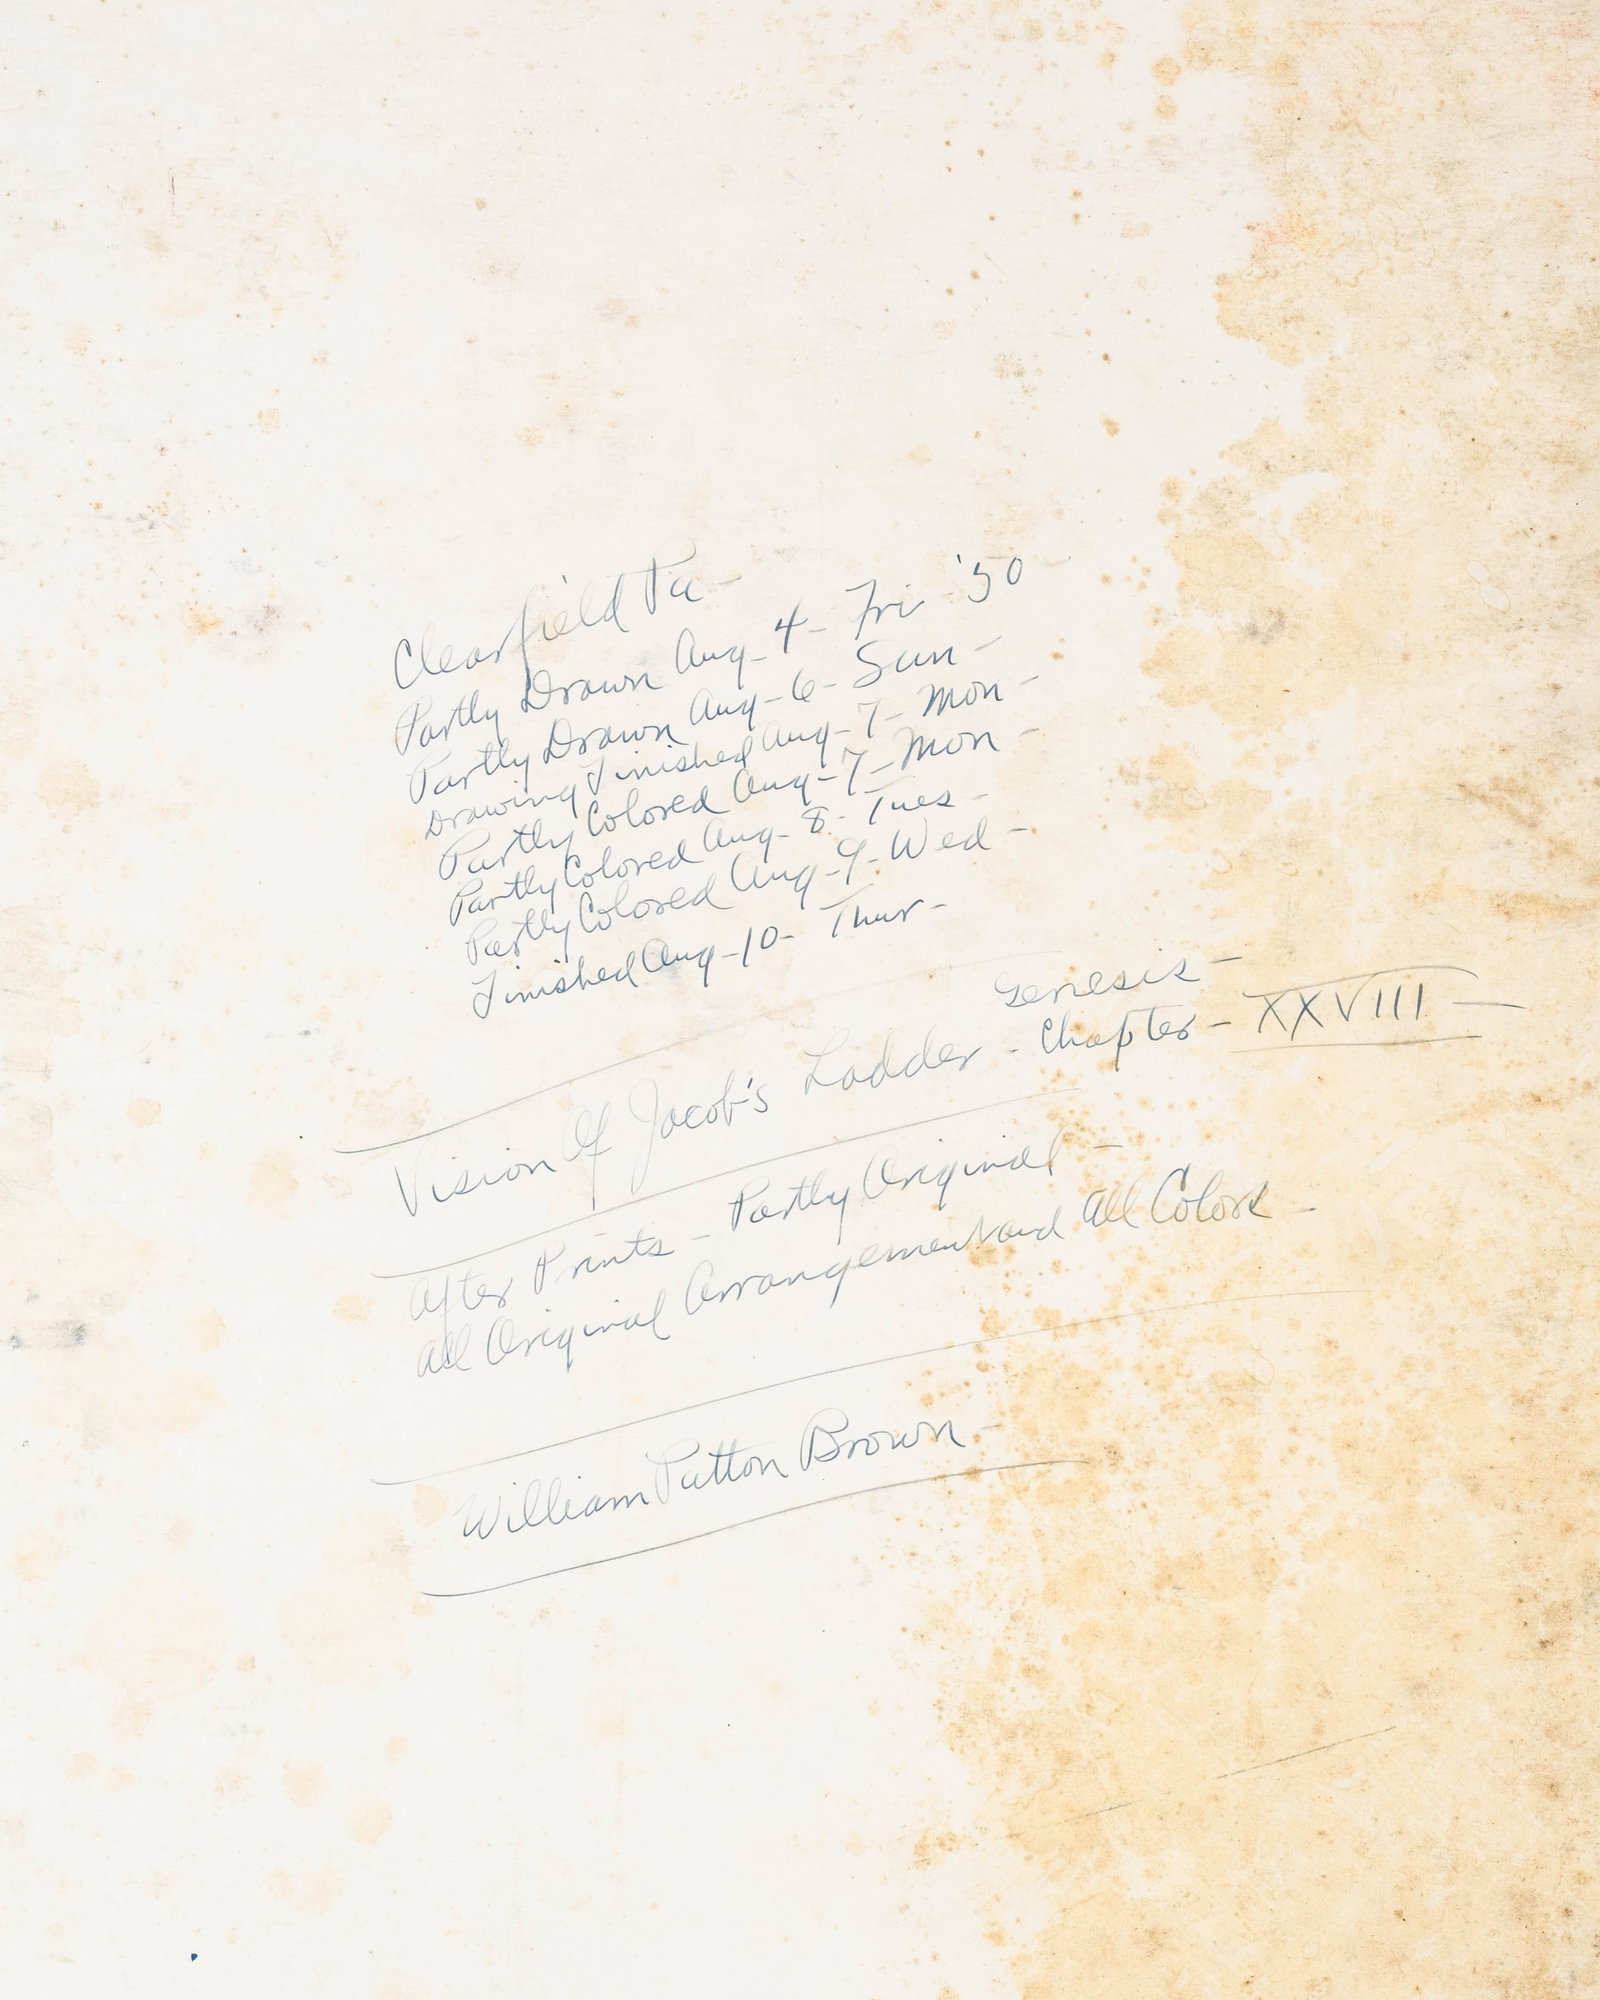 Clearfield Pa -
Partly Drawn Aug - 4 - Fri - '50 -
Partly Drawn Aug - 6 - Sun -
Drawing Finished Aug - 7 - Mon -
Partly Colored Aug - 7 - Mon -
Partly Colored Aug - 8 - Tues -
Partly Colored Aug - 9 - Wed -
Finished Aug - 10 - Thur -
Genesis -
Vision Of Jacob's Ladder - Chapter - XXVIII -
After Prints - Partly Original -
All Original Arrangement and All Colors -
William Patton Brown -